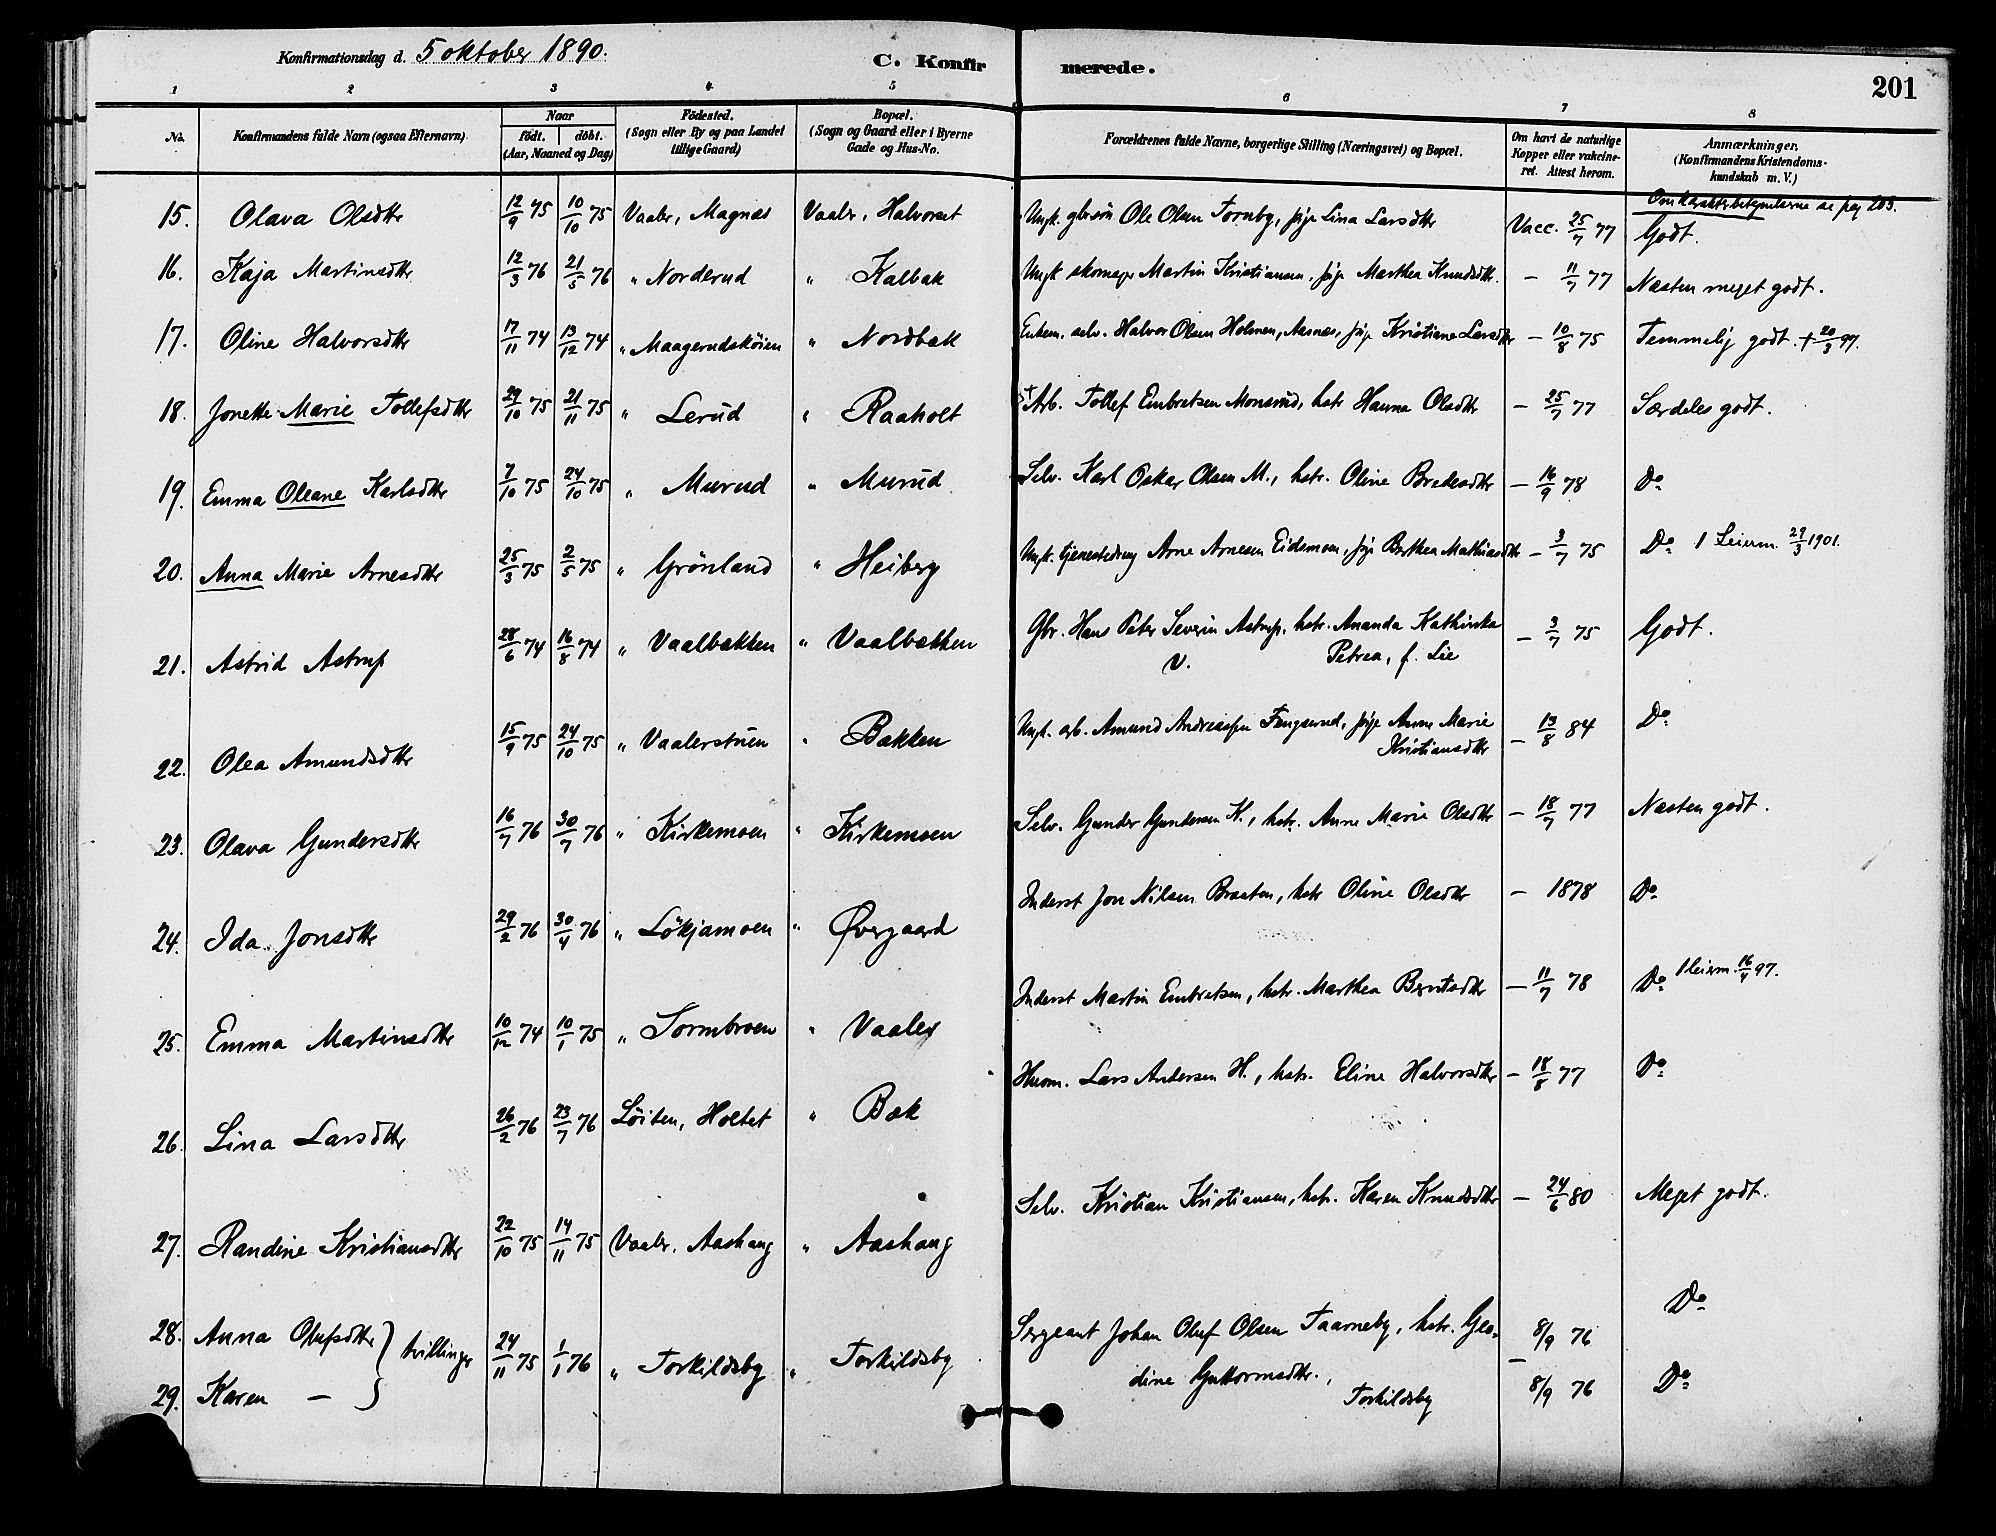 Konfirmationsdag d. 5 oktober 1890.
C. Konfirmerede.
201
1 2 3 4 5 6 7 8
No. Konfirmandens fulde Navn (ogsaa Efternavn) Naar født. døbt. (Aar, Maaned og Dag) Fødested. (Sogn eller By og paa Landet tillige Gaard) Bopæl. (Sogn og Gaard eller i Byerne Gade og Hus-No. Forældrenes fulde Navne, borgerlige Stilling (Næringsvei) og Bopæl. Om havt de naturlige Kopper eller vakcineret. Attest herom. Anmærkninger. (Konfirmandens Kristendomskundskab m. V.)
Om karakterbetegnelserne se pag 203.
15. Olava Olsdtr 12/9 75 10/10 75 Vaaler, Magnæs Vaaler, Halvorset Ungk. gbrsøn Ole Olsen Tornby, pige Lina Larsdtr Vacc. 25/7 77 Godt.
16. Kaja Martinsdtr 12/3 76 21/5 76 " Norderud " Kalbak Ungk skomager Martin Kristiansen, pige Marthea Knudsdtr. - 11/7 77 Næsten meget godt.
17. Oline Halvorsdtr 17/11 74 13/12 74 " Maagerudskøien " Nordbak Enkem. selv. Halvor Olsen Holmen, Aasnes, pige Kristiane Larsdtr - 10/8 75 Temmelig godt. † 20/3 97.
18. Jonette Marie Tollefsdtr 29/10 75 21/11 75 " Lerud " Raaholt † Arb. Tollef Embretsen Monsrud, hstr Hanna Olsdtr - 25/7 77 Særdeles godt.
19. Emma Oleane Karlsdtr 7/10 75 24/10 75 " Murud " Murud Selv. Karl Oskar Olsen M., hstr. Oline Bredesdtr - 16/9 78 Do
20. Anna Marie Arnesdtr 25/3 75 2/5 75 " Grønland " Heiberg Ungk. tjenestedreng Arne Arnesen Eidsmoen, pige Berthea Mathiasdtr - 3/7 75 Do 1 Leierm. 29/3 1901.
21. Astrid Astrup 28/6 74 16/8 74 " Vaalbakken " Vaalbækken Gbr. Hans Peter Severin Astrup, hstr. Ananda Kathinka
V. Petrea, f. Lie - 3/7 75 Godt.
22. Olea Amundsdtr 15/9 75 24/10 75 " Vaalerstuen " Bakken Ungk. arb. Amund Andreassen Fengserud, pige Anne Marie
Kristiansdtr - 13/8 84 Do
23. Olava Gundersdtr 16/7 76 30/7 76 " Kirkemoen " Kirkemoen Selv. Gunder Gundersen K., hstr. Anne Marie Olsdtr - 18/7 77 Næsten godt.
24. Ida Jonsdtr 29/2 76 30/4 76 " Løkjamoen " Øvergaard Inderst Jon Nilsen Braaten, hstr Oline Olsdtr - 1878 Do
25. Emma Martinsdtr 10/12 74 10/1 75 " Sormbroen " Vaaler Inderst Martin Embretsen, hstr. Marthea Berntsdtr - 11/7 78 Do 1 leierm. 16/4 97.
26. Lina Larsdtr 26/2 76 23/7 76 Løiten, Holtet " Bæk Husm. Lars Andersen H., hstr. Eline Halvorsdtr - 18/8 77 Do
27. Randine Kristiansdtr 22/10 75 14/11 75 Vaaler, Aashaug " Aashaug Selv. Kristian Kristiansen, hstr. Karen Knudsdtr - 24/6 80 Meget godt.
28. Anna Olufsdtr } tvillinger 24/11 75 1/1 76 " Torkildsby " Torkildsby Sergeant Johan Oluf Olsen Taarneby, hstr. Gea- 8/9 76 Do
29. Karen — dine Guttormsdtr., Torkildsby - 8/9 76 Do